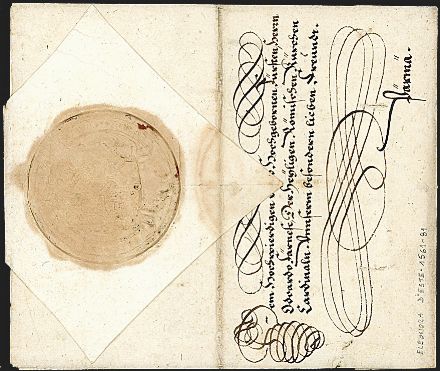 Dem Hochwierdigen Hochgebornen Fürsten, Herrn
Odoardo Farnese, Der Heyligen Römischen Kürchen
Cardinaln. Unnserm besondern lieben Freundt.
Parma.
ELEONORA D'ESTE - 1561-81